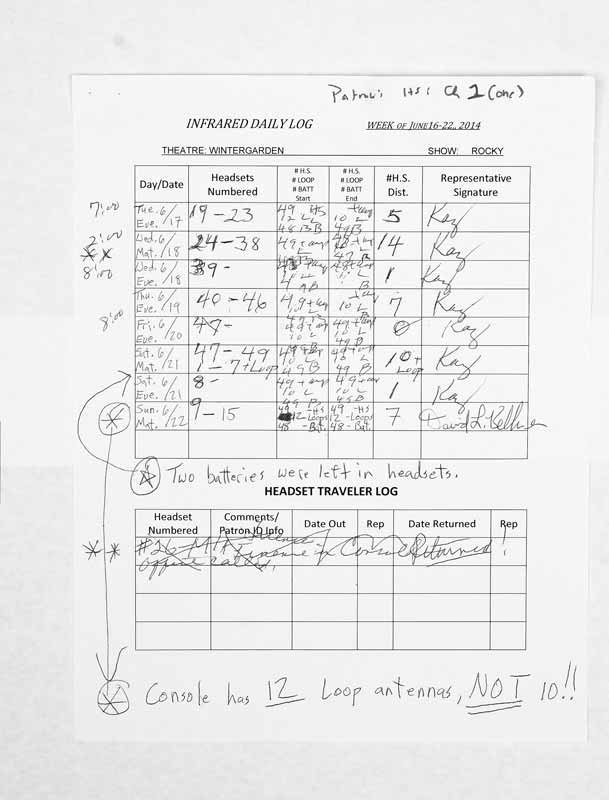 Patrons HS: Ch 1 (one)
INFRARED DAILY LOG WEEK OF JUNE16-22, 2014
THEATRE: WINTERGARDEN SHOW: ROCKY
Day/Date Headsets Numbered # H.S. # LOOP # BATT Start # H.S. # LOOP # BATT End #H.S. Dist. Representative Signature
7:00 Tue. 6/17 Eve. 19-23 49 HS 12 LL 48 B 10 L 49B 5 Kay
2:00 Wed. 6/18 Mat. 24-38 14 Kay
8:00 Wed. 6/18 Eve. 39- 1 Kay
Thu. 6/19 Eve. 40-46 10 L 7 Kay
8:00 Fri. 6/20 Eve. 47- 10 L 49B 0 Kay
Sat. 6/21 Mat. 47-49 1-7+Loop 10 L 49B 10 L 49 B 10+ Loop Kay
Sat. 6/21 Eve. 8- 10 L 10 L 1 Kay
Sun. 6/22 Mat. 9-15 49 -HS 12-Loops 48 -Bat. 49 -HS 12-Loops 48-Bat. 7 David L. Kellner
Two batteries were left in headsets.
HEADSET TRAVELER LOG
Headset Numbered Comments/ Patron ID Info Date Out Rep Date Returned Rep
#26 - License in Console Returned !
office called.
Console has 12 Loop antennas, NOT 10!!